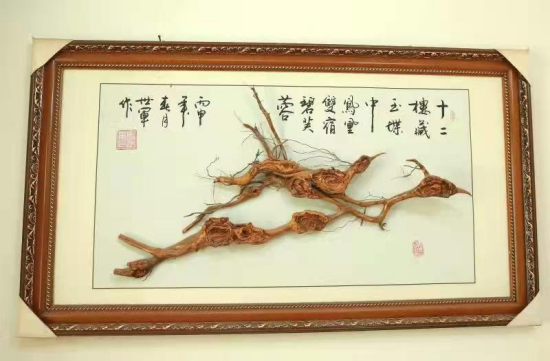 十二
樓藏
玉堞
中
鳳凰
雙宿
碧芙
蓉
丙申
年
春月
世軍
作